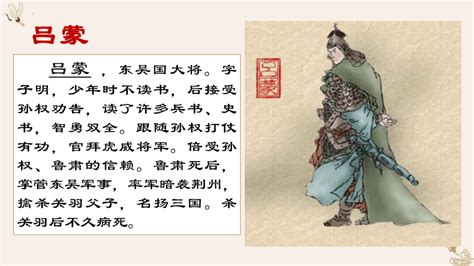 吕蒙
吕蒙，东吴国大将。字
子明，少年时不读书，后接受
孙权劝告，读了许多兵书、史
书，智勇双全。跟随孙权打仗
有功，官拜虎威将军。倍受孙
权、鲁肃的信赖。鲁肃死后，
掌管东吴军事，率军暗袭荆州，
擒杀关羽父子，名扬三国。杀
关羽后不久病死。
吕蒙